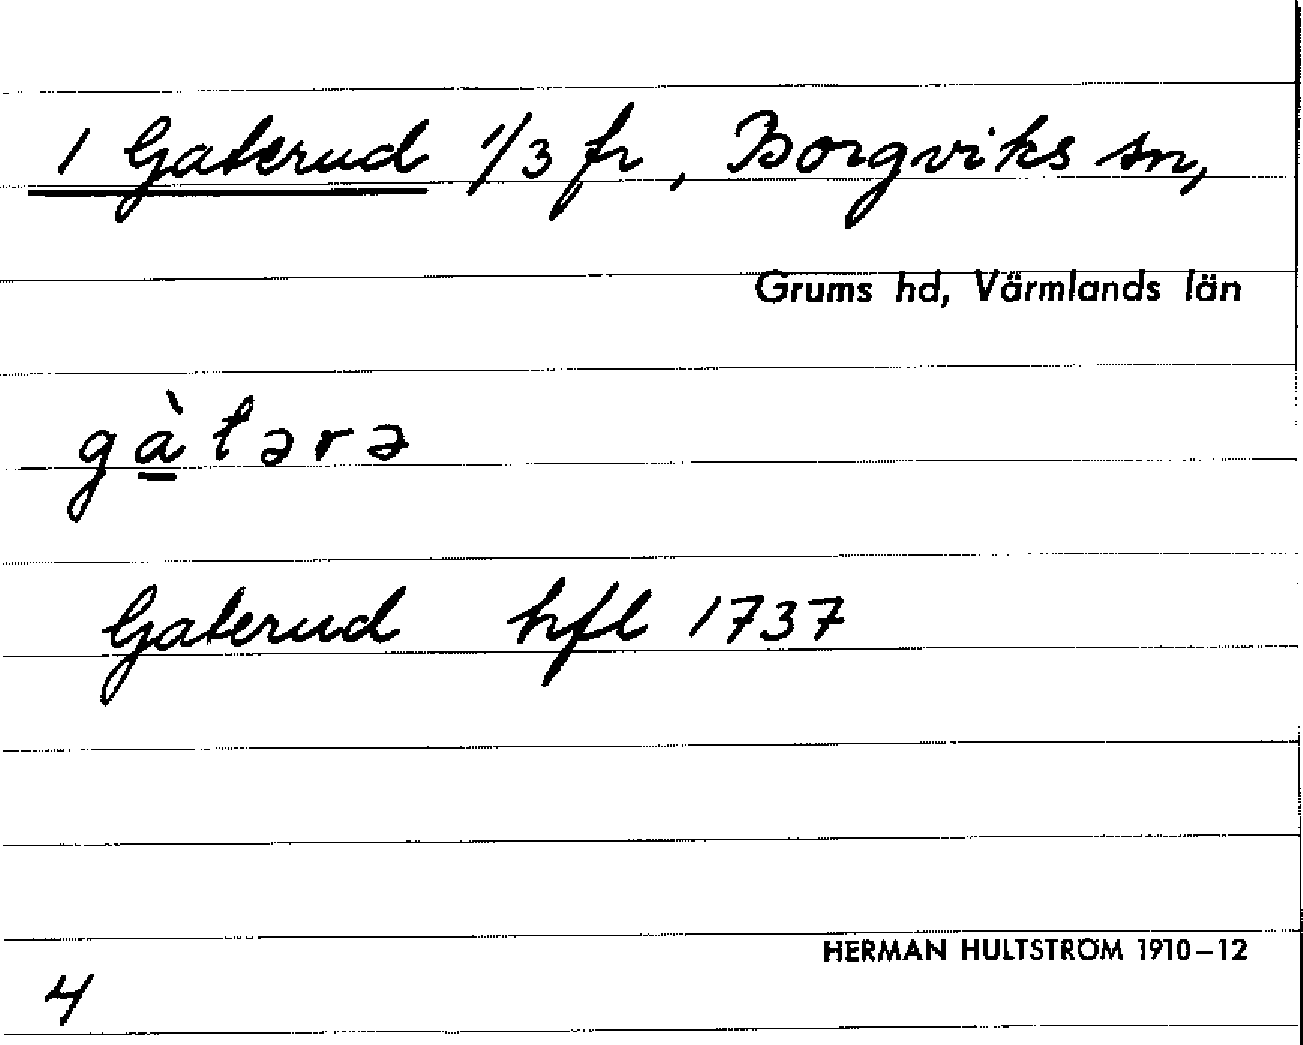 1 Gaterud 1/3 fr, Borgviks sn,
Grums hd, Värmlands län
gàtərə
Gaterud hfl 1737
HERMAN HULTSTRÖM 1910–12
4